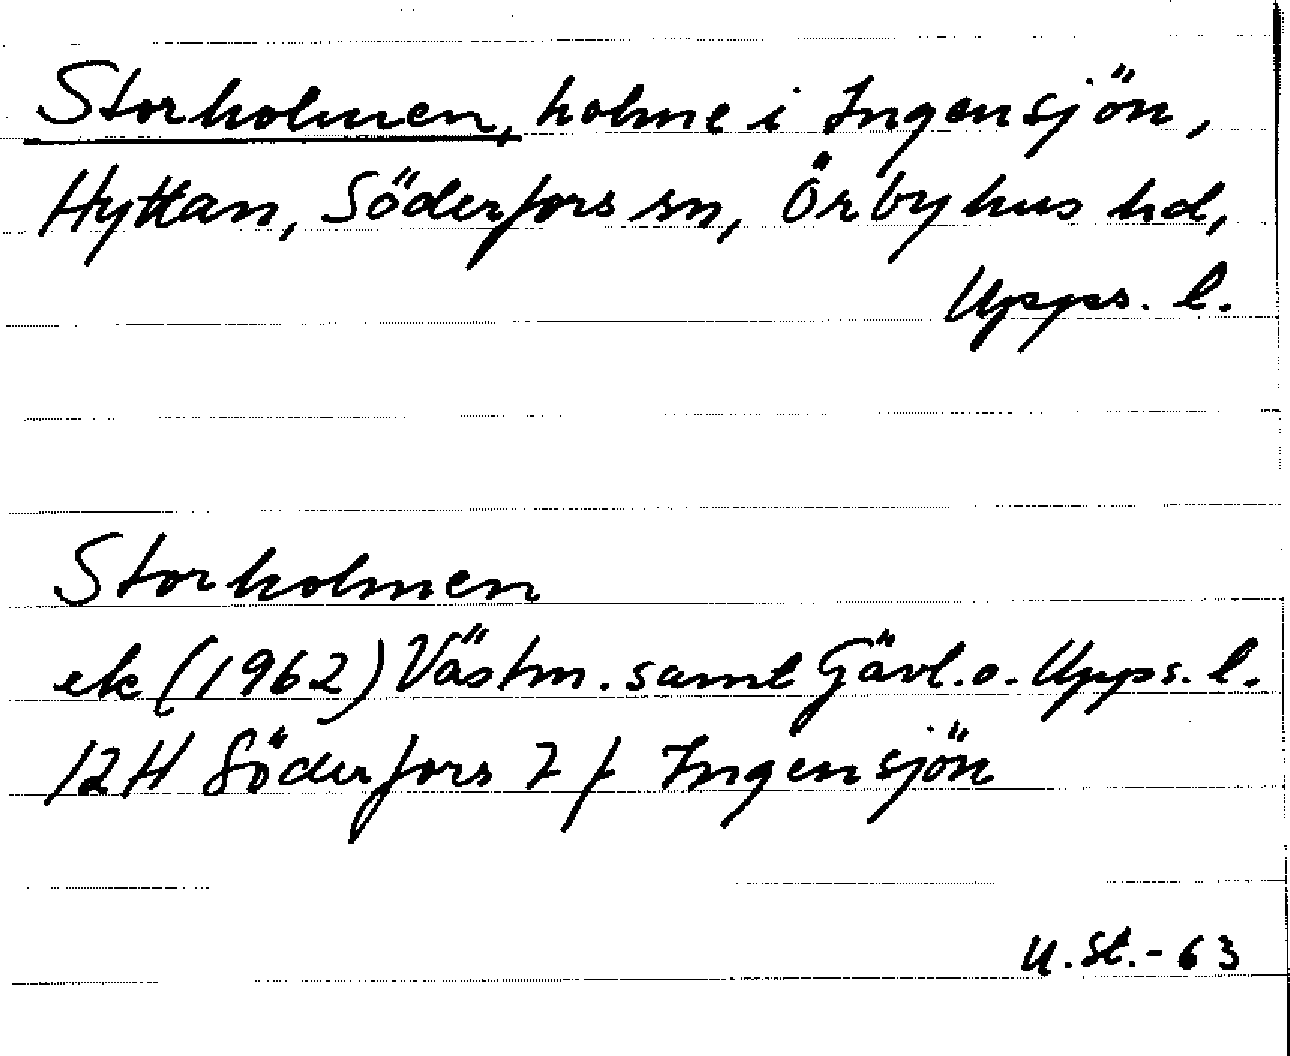 Storholmen, holme i Ingensjön,
Hyttan, Söderfors sn, Örbyhus hd,
Upps. l.
Storholmen
ek (1962) Västm. samt Gävl. o. Upps. l.
12H Söderfors 7 f Ingensjön
U.St.-63